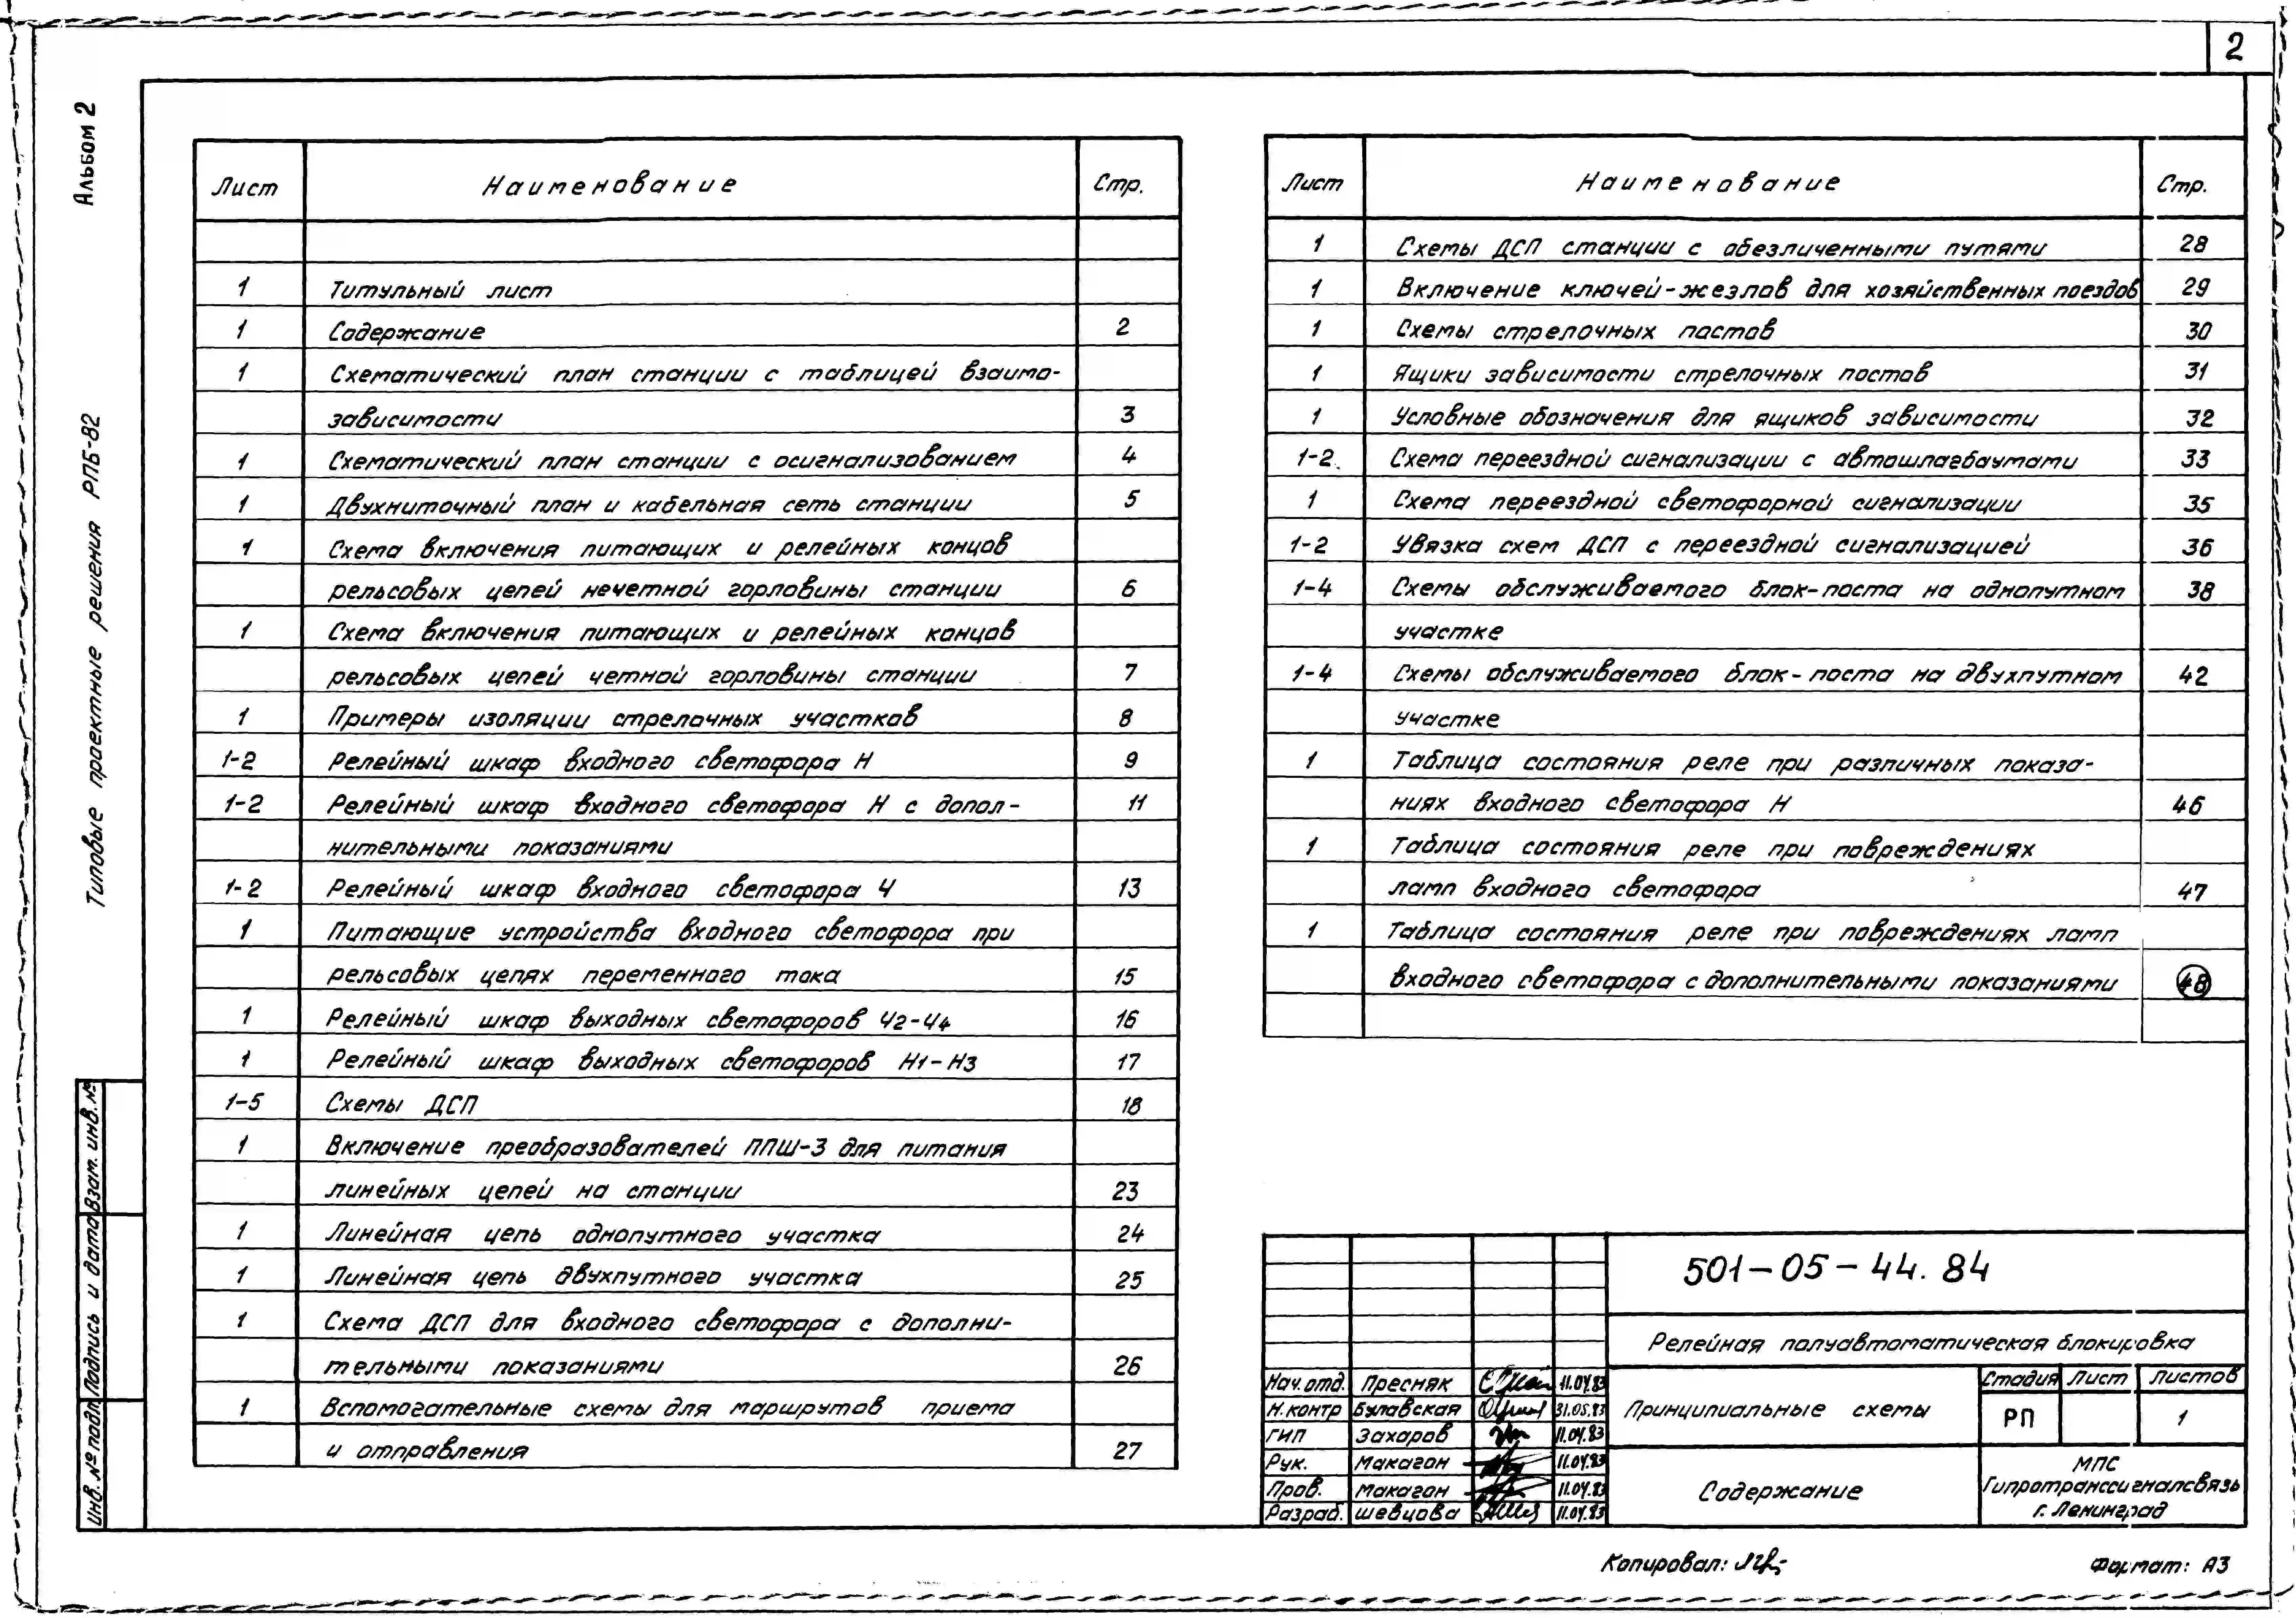 2
Альбом 2
Типовые проектные решения РПБ-82
Лист Наименование Стр.
1 Титульный лист
1 Содержание 2
1 Схематический план станции с таблицей взаимо-
зависимости 3
1 Схематический план станции с осигнализованием 4
1 Двухниточный план и кабельная сеть станции 5
1 Схема включения питающих и релейных концов
рельсовых цепей нечетной горловины станции 6
1 Схема включения питающих и релейных концов
рельсовых цепей четной горловины станции 7
1 Примеры изоляции стрелочных участков 8
1-2 Релейный шкаф входного светофора Н 9
1-2 Релейный шкаф входного светофора Н с допол-
нительными показаниями 11
1-2 Релейный шкаф входного светофора Ч 13
1 Питающие устройства входного светофора при
рельсовых цепях переменного тока 15
1 Релейный шкаф выходных светофоров Ч2-Ч4 16
1 Релейный шкаф выходных светофоров Н1-Н3 17
1-5 Схемы ДСП 18
1 Включение преобразователей ППШ-3 для питания
линейных цепей на станции 23
1 Линейная цепь однопутного участка 24
1 Линейная цепь двухпутного участка 25
1 Схема ДСП для входного светофора с дополни-
тельными показаниями 26
1 Вспомогательные схемы для маршрутов приема
и отправления 27
Лист Наименование Стр.
1 Схемы ДСП станции с обезличенными путями 28
1 Включение ключей-жезлов для хозяйственных поездов 29
1 Схемы стрелочных постов 30
1 Ящики зависимости стрелочных постов 31
1 Условные обозначения для ящиков зависимости 32
1-2 Схема переездной сигнализации с автошлагбаумами 33
1 Схема переездной светофорной сигнализации 35
1-2 Увязка схем ДСП с переездной сигнализацией 36
1-4 Схемы обслуживаемого блок-поста на однопутном 38
участке
1-4 Схемы обслуживаемого блок-поста на двухпутном 42
участке
1 Таблица состояния реле при различных показа-
ниях входного светофора Н 46
1 Таблица состояния реле при повреждениях
ламп входного светофора 47
1 Таблица состояния реле при повреждениях ламп
входного светофора с дополнительными показаниями 48
501-05-44.84
Релейная полуавтоматическая блокировка
Нач.отд. Пресняк 11.04.83
Н.контр Булавская 31.05.83
ГИП Захаров 11.04.83
Рук. Макагон 11.04.83
Пров. Макагон 11.04.83
Разраб. Шевцова 11.04.83
Принципиальные схемы
Стадия Лист Листов
РП 1
Содержание
МПС
Гипротранссигналсвязь
г. Ленинград
Инв. № подл. Подпись и дата Взам. инв. №
Копировал:
Формат: А3